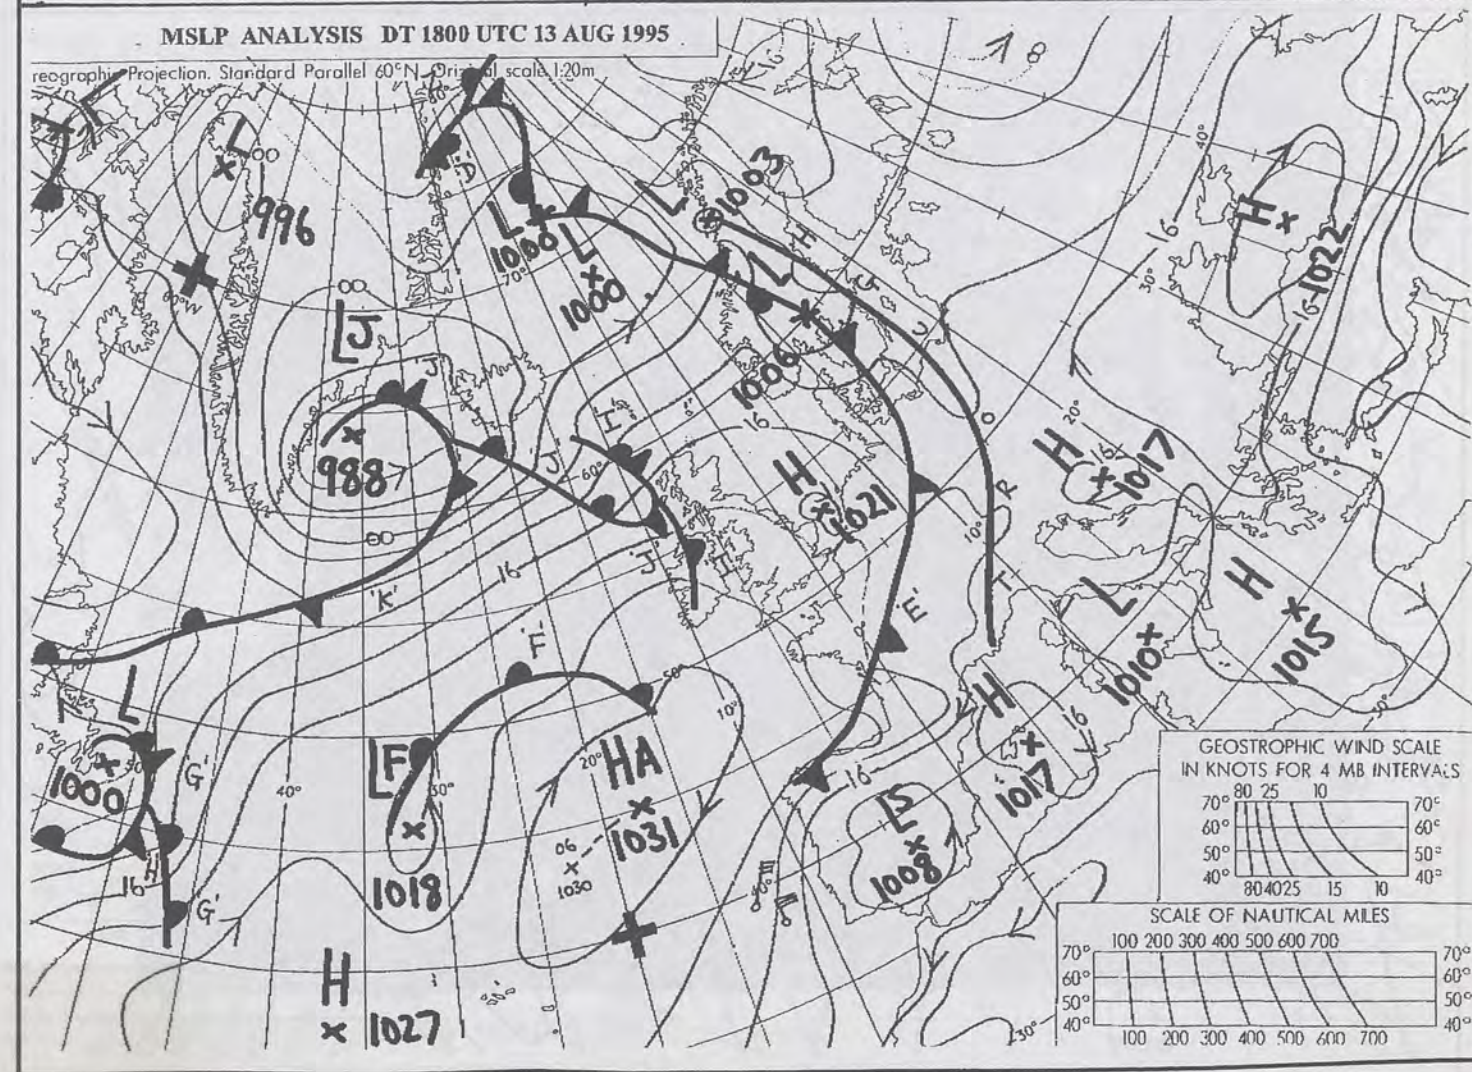 MSLP ANALYSIS DT 1800 UTC 13 AUG 1995
reographic Projection. Standard Parallel 60°N. Original scale 1:20m
18
16
40°
L 00
996
'D'
L
1003
L
1000
L
1000
70°
H
1022
16
16
30°
00
LJ
L
1006
60°W
J
988
'J'
'I'
60°
16
H
1021
20°
H
16
1017
10°
00
16
'K'
'J'
'I'
'E'
T R O U G H
L
1010
H
1015
'F'
50°
10°
L
1000
50°
'G'
40°
LF
30°
1018
20°
HA
1031
06
1030
16
H
16
1017
LS
1008
16
'H'
'G'
H
1027
30°
GEOSTROPHIC WIND SCALE
IN KNOTS FOR 4 MB INTERVALS
80 25 10
70° 70°
60° 60°
50° 50°
40° 40°
80 40 25 15 10
SCALE OF NAUTICAL MILES
100 200 300 400 500 600 700
70° 70°
60° 60°
50° 50°
40° 40°
100 200 300 400 500 600 700